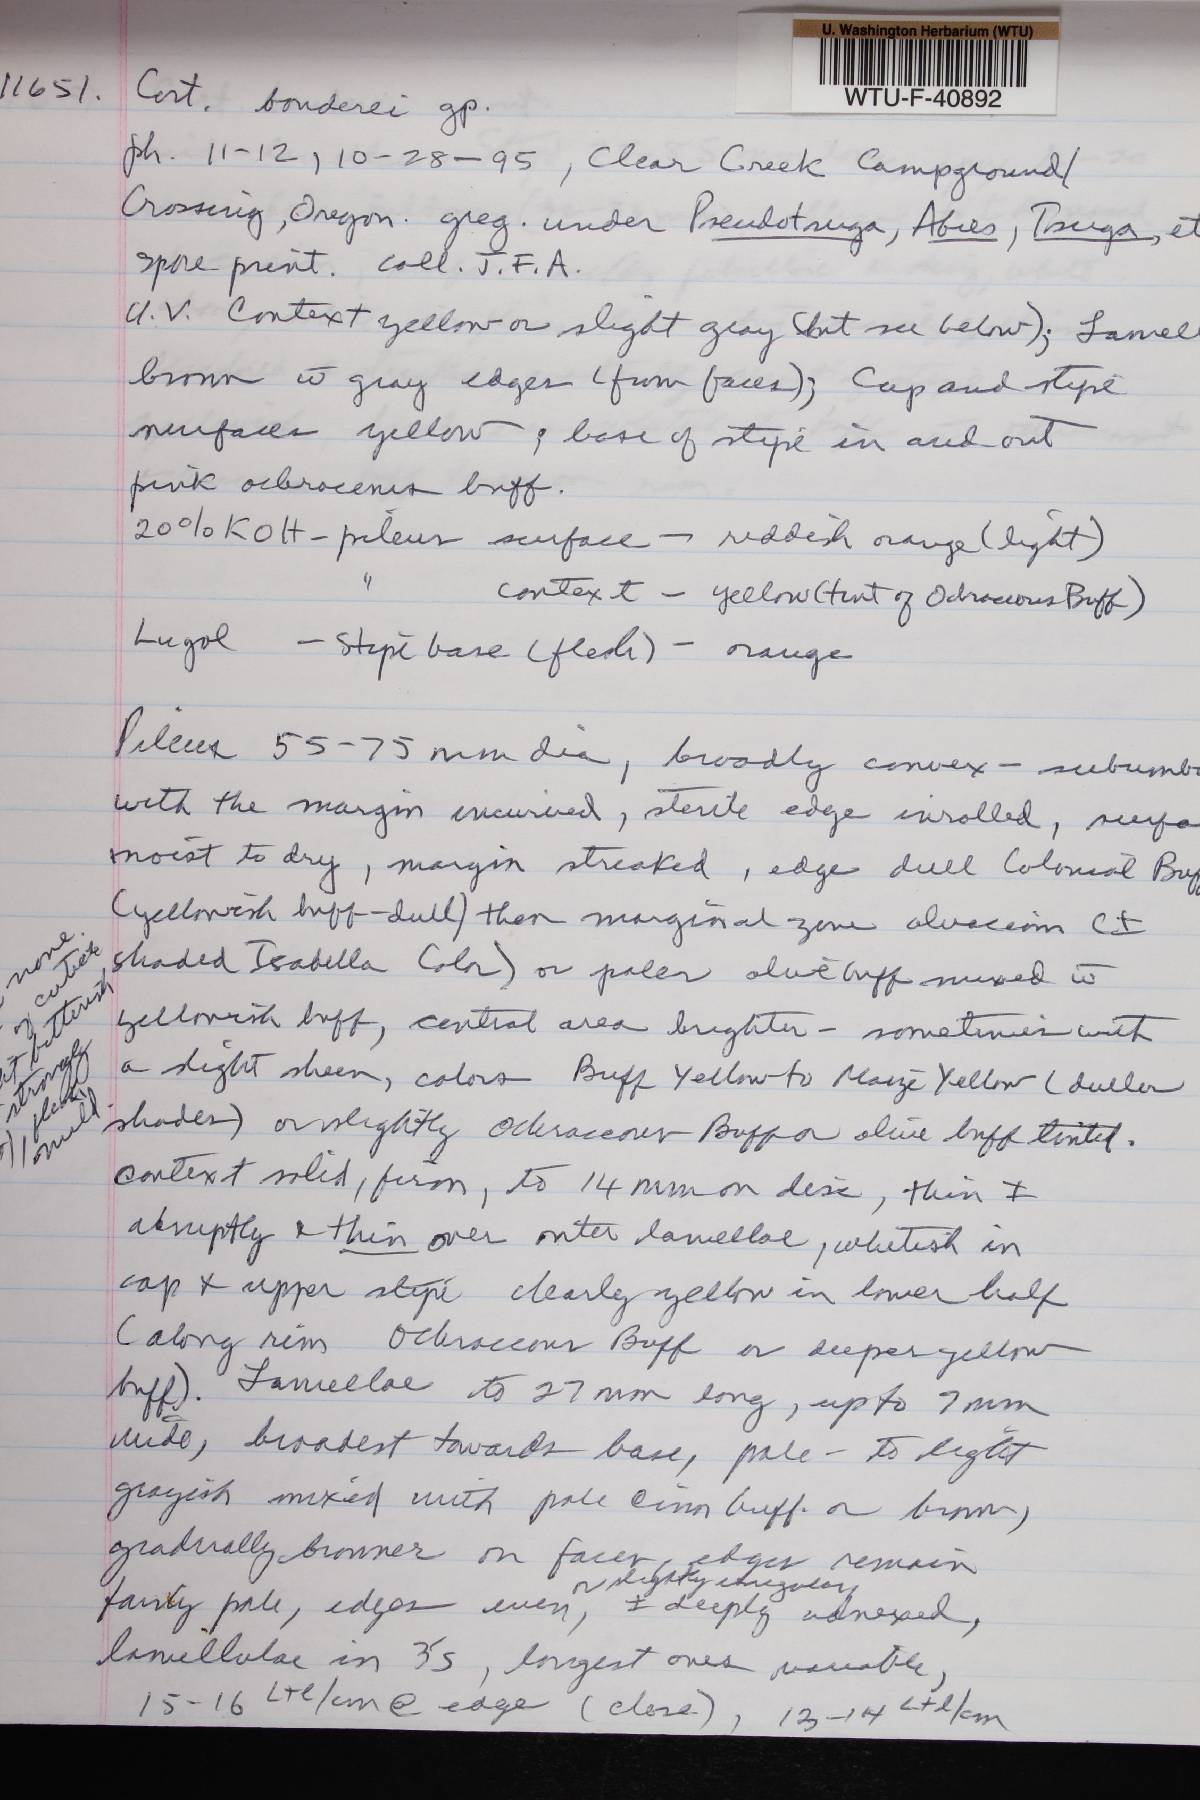 U. Washington Herbarium (WTU)
WTU-F-40892
11651. Cort. bonderei gp.
ph. 11-12, 10-28-95, Clear Creek Campground/
Crossing, Oregon. greg. under Pseudotsuga, Abies, Tsuga, et
spore print. coll. J.F.A.
U.V. Context yellow or slight gray (but see below); Lamell
brown w gray edges (from faces); Cap and stipe
surfaces yellow; base of stipe in and out
pink ochraceous buff.
20% KOH - pileus surface - reddish orange (light)
" context - yellow (tint of Ochraceous Buff)
Lugol - Stipe base (flesh) - orange
Pileus 55-75 mm dia, broadly convex - subumbo
with the margin incurved, sterile edge inrolled, surfa
moist to dry, margin streaked, edge dull Colonial Buff
(yellowish buff-dull) then marginal zone (±
shaded Isabella Color) or paler olive buff mixed w
yellowish buff, central area brighter - sometimes with
a slight sheen, colors Buff Yellow to Maize Yellow (duller
shades) or slightly Ochraceous Buff or olive buff tinted.
context solid, firm, to 14 mm on disc, thin ±
abruptly & thin over outer lamellae, whitish in
cap & upper stipe clearly yellow in lower half
(along rim Ochraceous Buff or deeper yellow
buff). Lamellae to 27 mm long, up to 7 mm
wide, broadest towards base, pale - to light
grayish mixed with pale cinn buff or brown,
gradually browner on faces, edges remain
or slightly irregular,
fairly pale, edges even, ± deeply adnexed,
lamellulae in 3's, longest ones variable,
15-16 L+l/cm @ edge (close), 13-14 L+l/cm
none.
of cuticle
bitterish
strongly
flesh
mild.